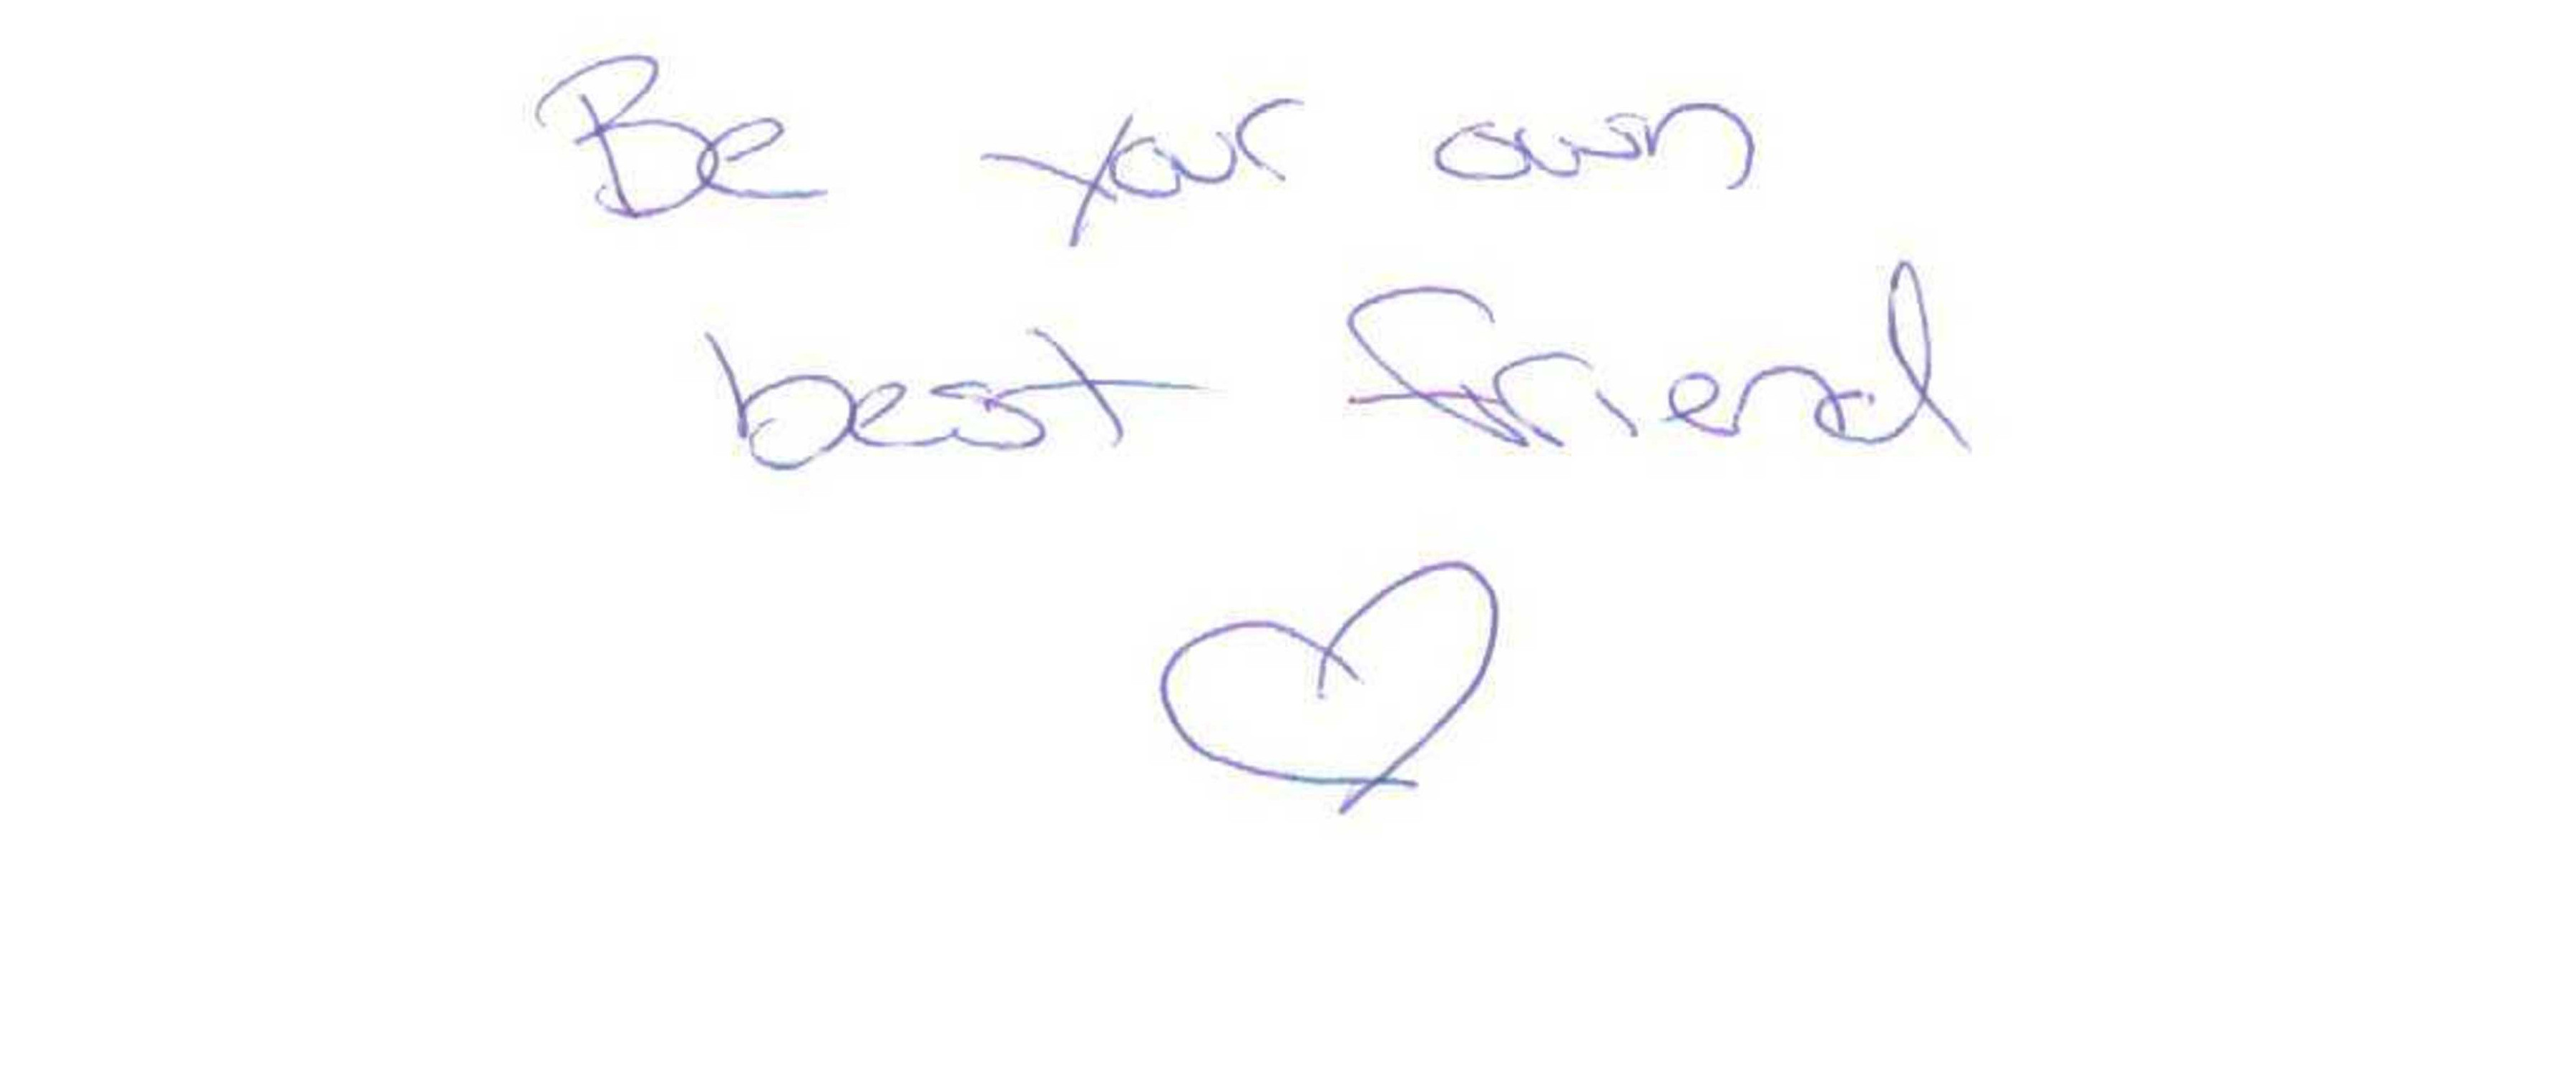 Be your own
best friend